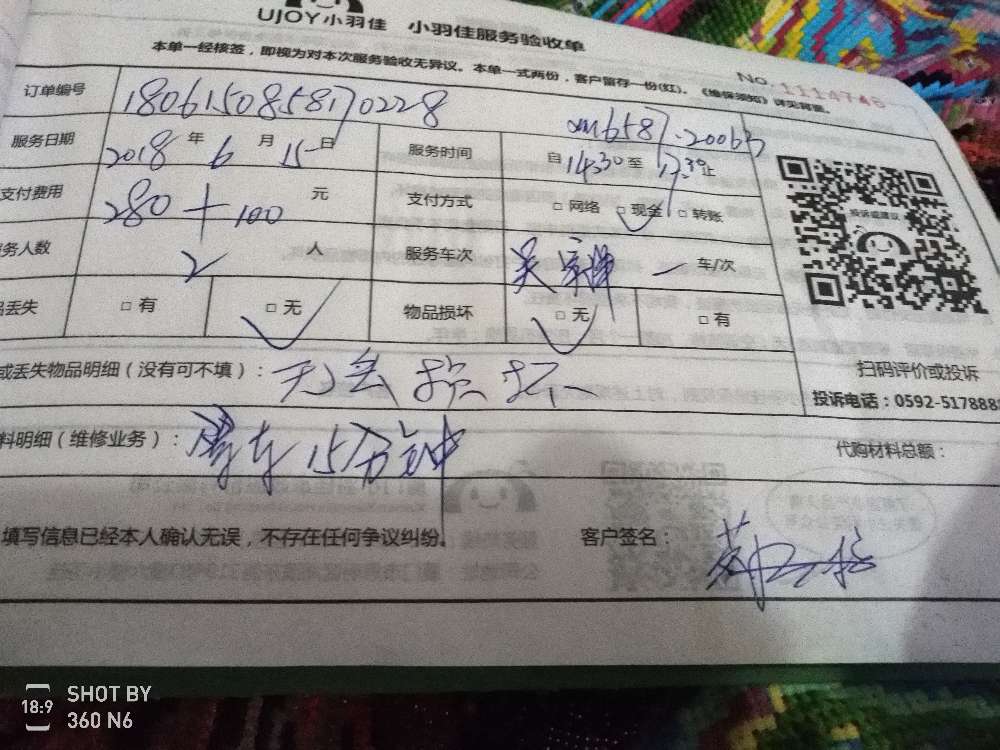 UJOY小羽佳 小羽佳服务验收单
本单一经核签，即视为对本次服务验收无异议。本单一式两份，客户留存一份(红)。《维保须知》详见背面。
No. 1114745
订单编号 180615085870228
服务日期 2018年6月15日 服务时间 自14:30至17:30止
支付费用 280+100元 支付方式 □网络 □现金 □转账
务人数 2人 服务车次 一车/次
品丢失 □有 □无 物品损坏 □无 □有
投诉或建议
或丢失物品明细（没有可不填）： 无丢损坏
扫码评价或投诉
投诉电话：0592-5178888
料明细（维修业务）： 15分钟
代购材料总额：
填写信息已经本人确认无误，不存在任何争议纠纷。 客户签名：
18:9 SHOT BY
360 N6